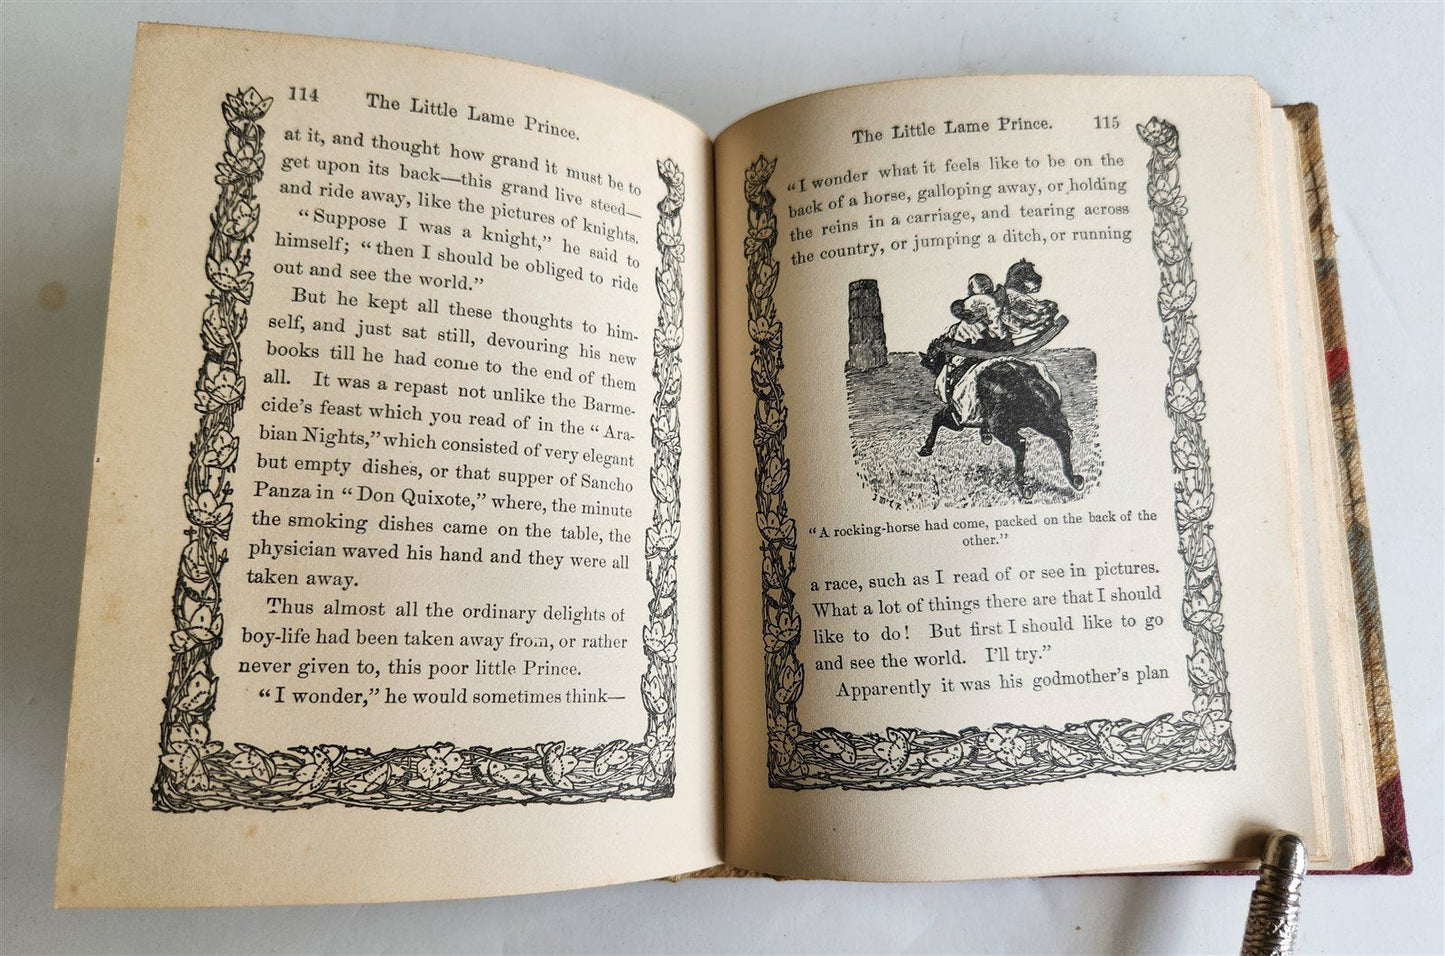 114 The Little Lame Prince.
at it, and thought how grand it must be to
get upon its back—this grand live steed—
and ride away, like the pictures of knights.
“Suppose I was a knight,” he said to
himself; “then I should be obliged to ride
out and see the world.”
But he kept all these thoughts to him-
self, and just sat still, devouring his new
books till he had come to the end of them
all. It was a repast not unlike the Barme-
cide’s feast which you read of in the “Ara-
bian Nights,” which consisted of very elegant
but empty dishes, or that supper of Sancho
Panza in “Don Quixote,” where, the minute
the smoking dishes came on the table, the
physician waved his hand and they were all
taken away.
Thus almost all the ordinary delights of
boy-life had been taken away from, or rather
never given to, this poor little Prince.
“I wonder,” he would sometimes think—
The Little Lame Prince. 115
“I wonder what it feels like to be on the
back of a horse, galloping away, or holding
the reins in a carriage, and tearing across
the country, or jumping a ditch, or running
“A rocking-horse had come, packed on the back of the
other.”
a race, such as I read of or see in pictures.
What a lot of things there are that I should
like to do! But first I should like to go
and see the world. I’ll try.”
Apparently it was his godmother’s plan